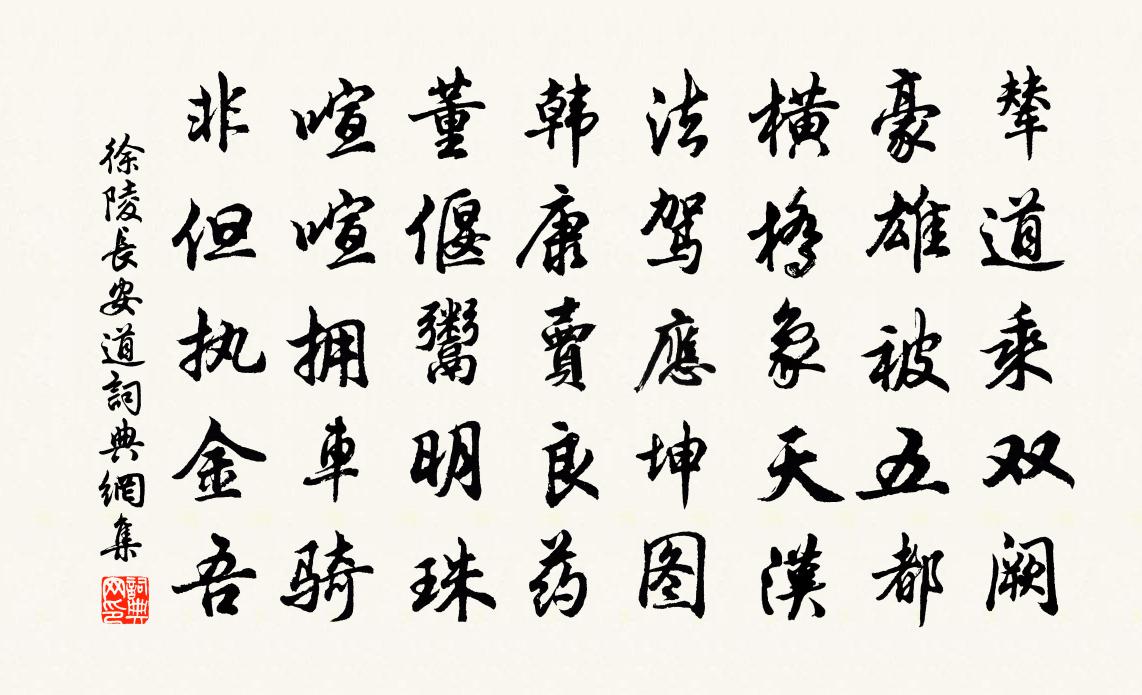 辇道乘双阙
豪雄被五都
横桥象天汉
法驾应坤图
韩康卖良药
董偃鬻明珠
喧喧拥车骑
非但执金吾
徐陵長安道詞典網集
詞典网印